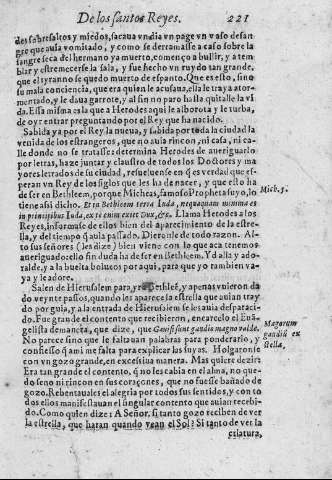 De los santos Reyes. 221
des sobresaltos y miedos, sacaua vn dia vn page vn vaso de san-
gre que auia vomitado, y como se derramasse a caso sobre la
sangre seca del hermano ya muerto, començo a bullir, y a tem-
blar y estremecerse la sala, y fue hecho vn ruydo tan grande,
que el tyranno se quedo muerto de espanto. Que es esto, sino
su mala conciencia, que era quien le acusaua, ella le traya ator-
mentado, y le daua garrote, y al fin no paro hasta quitalle la vi
da. Essa misma es la que a Herodes aqui le alborota y le turba,
de oyr entrar preguntando por el Rey que ha nacido.
Sabida ya por el Rey la nueua, y sabida por toda la ciudad la
venida de los estrangeros, que no auia rincon, ni casa, ni ca-
lle donde no se tratasse: determina Herodes de aueriguarlo
por letras, haze juntar y claustro de todos los Doctores y ma
yores letrados de su ciudad, resueluense en que es verdad que es-
peran vn Rey de los siglos que les ha de nacer, y que esto ha
de ser en Bethleem, porque Micheas, famoso Propheta suyo, lo
tiene assi dicho. Et tu Bethleem terra Iuda, nequaquam minima es
in principibus Iuda, ex te enim exiet Dux, &c. Llama Herodes a los
Reyes, informase de ellos bien del aparecimiento de la estre-
lla, y del tiempo que auia passado. Dieronle de todo razon. Al-
tos señores (les dize) bien viene con lo que aca tenemos
aueriguado ello sin duda ha de ser en Bethleem. Yd alla y ado-
ralde, y a la buelta bolueos por aqui, para que yo tambien va-
ya y le adore.
Mich. 5.
Salen de Hierusalem para yr a Bethleé, y apenas vuieron da
do veynte passos, quando les aparece la estrella que auian tray
do por guia, y a la entrada de Hierusalem se les auia desparaci-
do. Fue grande el contento que recibieron, encarcelo el Euã-
gelista demanera, que dize, que Gauisi sunt gaudio magno valde.
No parece sino que le faltauan palabras para ponderarlo, y
confiesso que a mi me falta para explicar las suyas. Holgaronse
con vn gozo grande, en excessiua manera. Mas quiere dezir:
Era tan grande el contento, que no les cabia en el alma, no que-
do seno ni rincon en sus coraçones, que no fuesse bañado de
gozo. Rebentauales el alegria por todos sus sentidos, y con to
dos ellos manifestauan el singular contento que auian recebi-
do. Como quien dize: A Señor, si tanto gozo reciben de ver
la estrella, que haran quando vean el Sol? Si tanto de ver la
Magorum
gaudiũ ex
stella.
criatura,